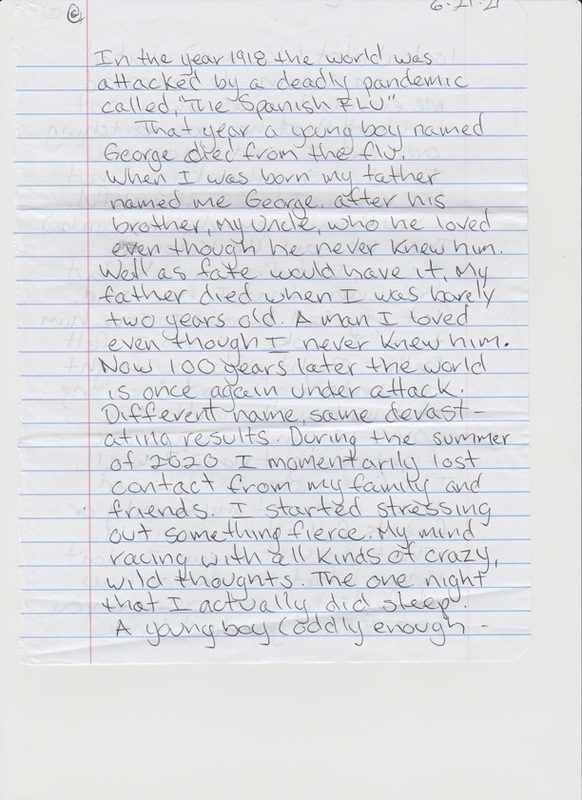 © 6-21-21
In the year 1918 the world was
attacked by a deadly pandemic
called, "The Spanish FLU"
That year a young boy named
George died from the flu.
When I was born my father
named me George. after his
brother, My Uncle, who he loved
even though he never knew him.
Well as fate would have it, My
father died when I was barely
two years old. A man I loved
even though I never knew him.
Now 100 years later the world
is once again under attack.
Different name, same devast-
ating results. During the summer
of 2020 I momentarily lost
contact from my family and
friends. I started stressing
out something fierce. My mind
racing with all kinds of crazy,
wild thoughts. The one night
that I actually did sleep.
A young boy (oddly enough -